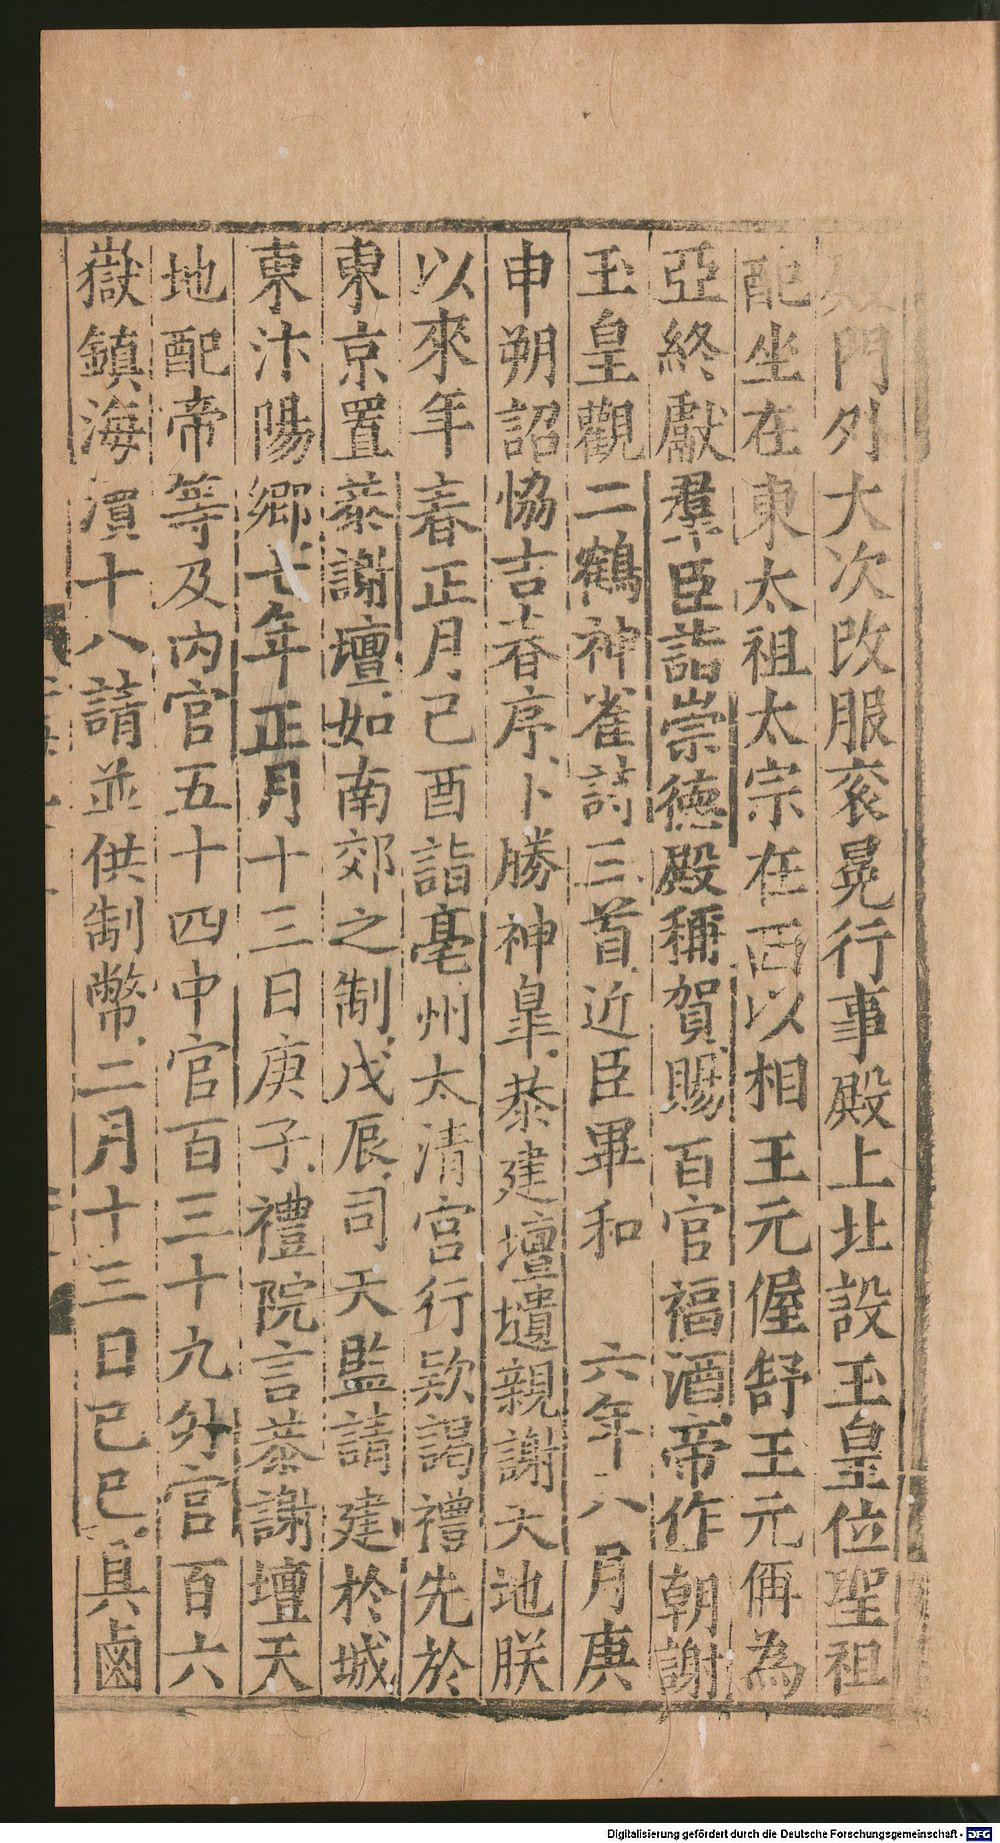 殿門外大次改服衮冕行事殿上北設玉皇位聖祖
配坐在東太祖太宗在西以相王元偓舒王元偁為
亞終獻羣臣詣崇德殿稱賀賜百官福酒帝作朝謝
玉皇觀二鶴神雀詩三首近臣畢和 六年八月庚
申朔詔恊吉春序卜勝神皐恭建壇壝親謝天地朕
以來年春正月己酉詣亳州太清宫行欵謁禮先於
東京置恭謝壇如南郊之制戊辰司天監請建於城
東汴陽鄉七年正月十三日庚子禮院言恭謝壇天
地配帝等及内官五十四中官百三十九外官百六
嶽鎮海瀆十八請並供制幣二月十三日己巳具鹵
Digitalisierung gefördert durch die Deutsche Forschungsgemeinschaft - DFG